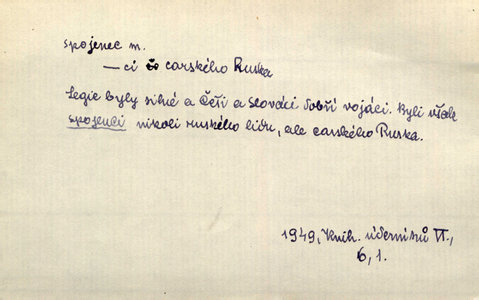 spojenec m.
— ci carského Ruska
Legie byly silné a Češi a Slováci dobří vojáci. Byli však
spojenci nikoli ruského lidu, ale carského Ruska.
1949, Knih. úderníků VI.,
6, 1.